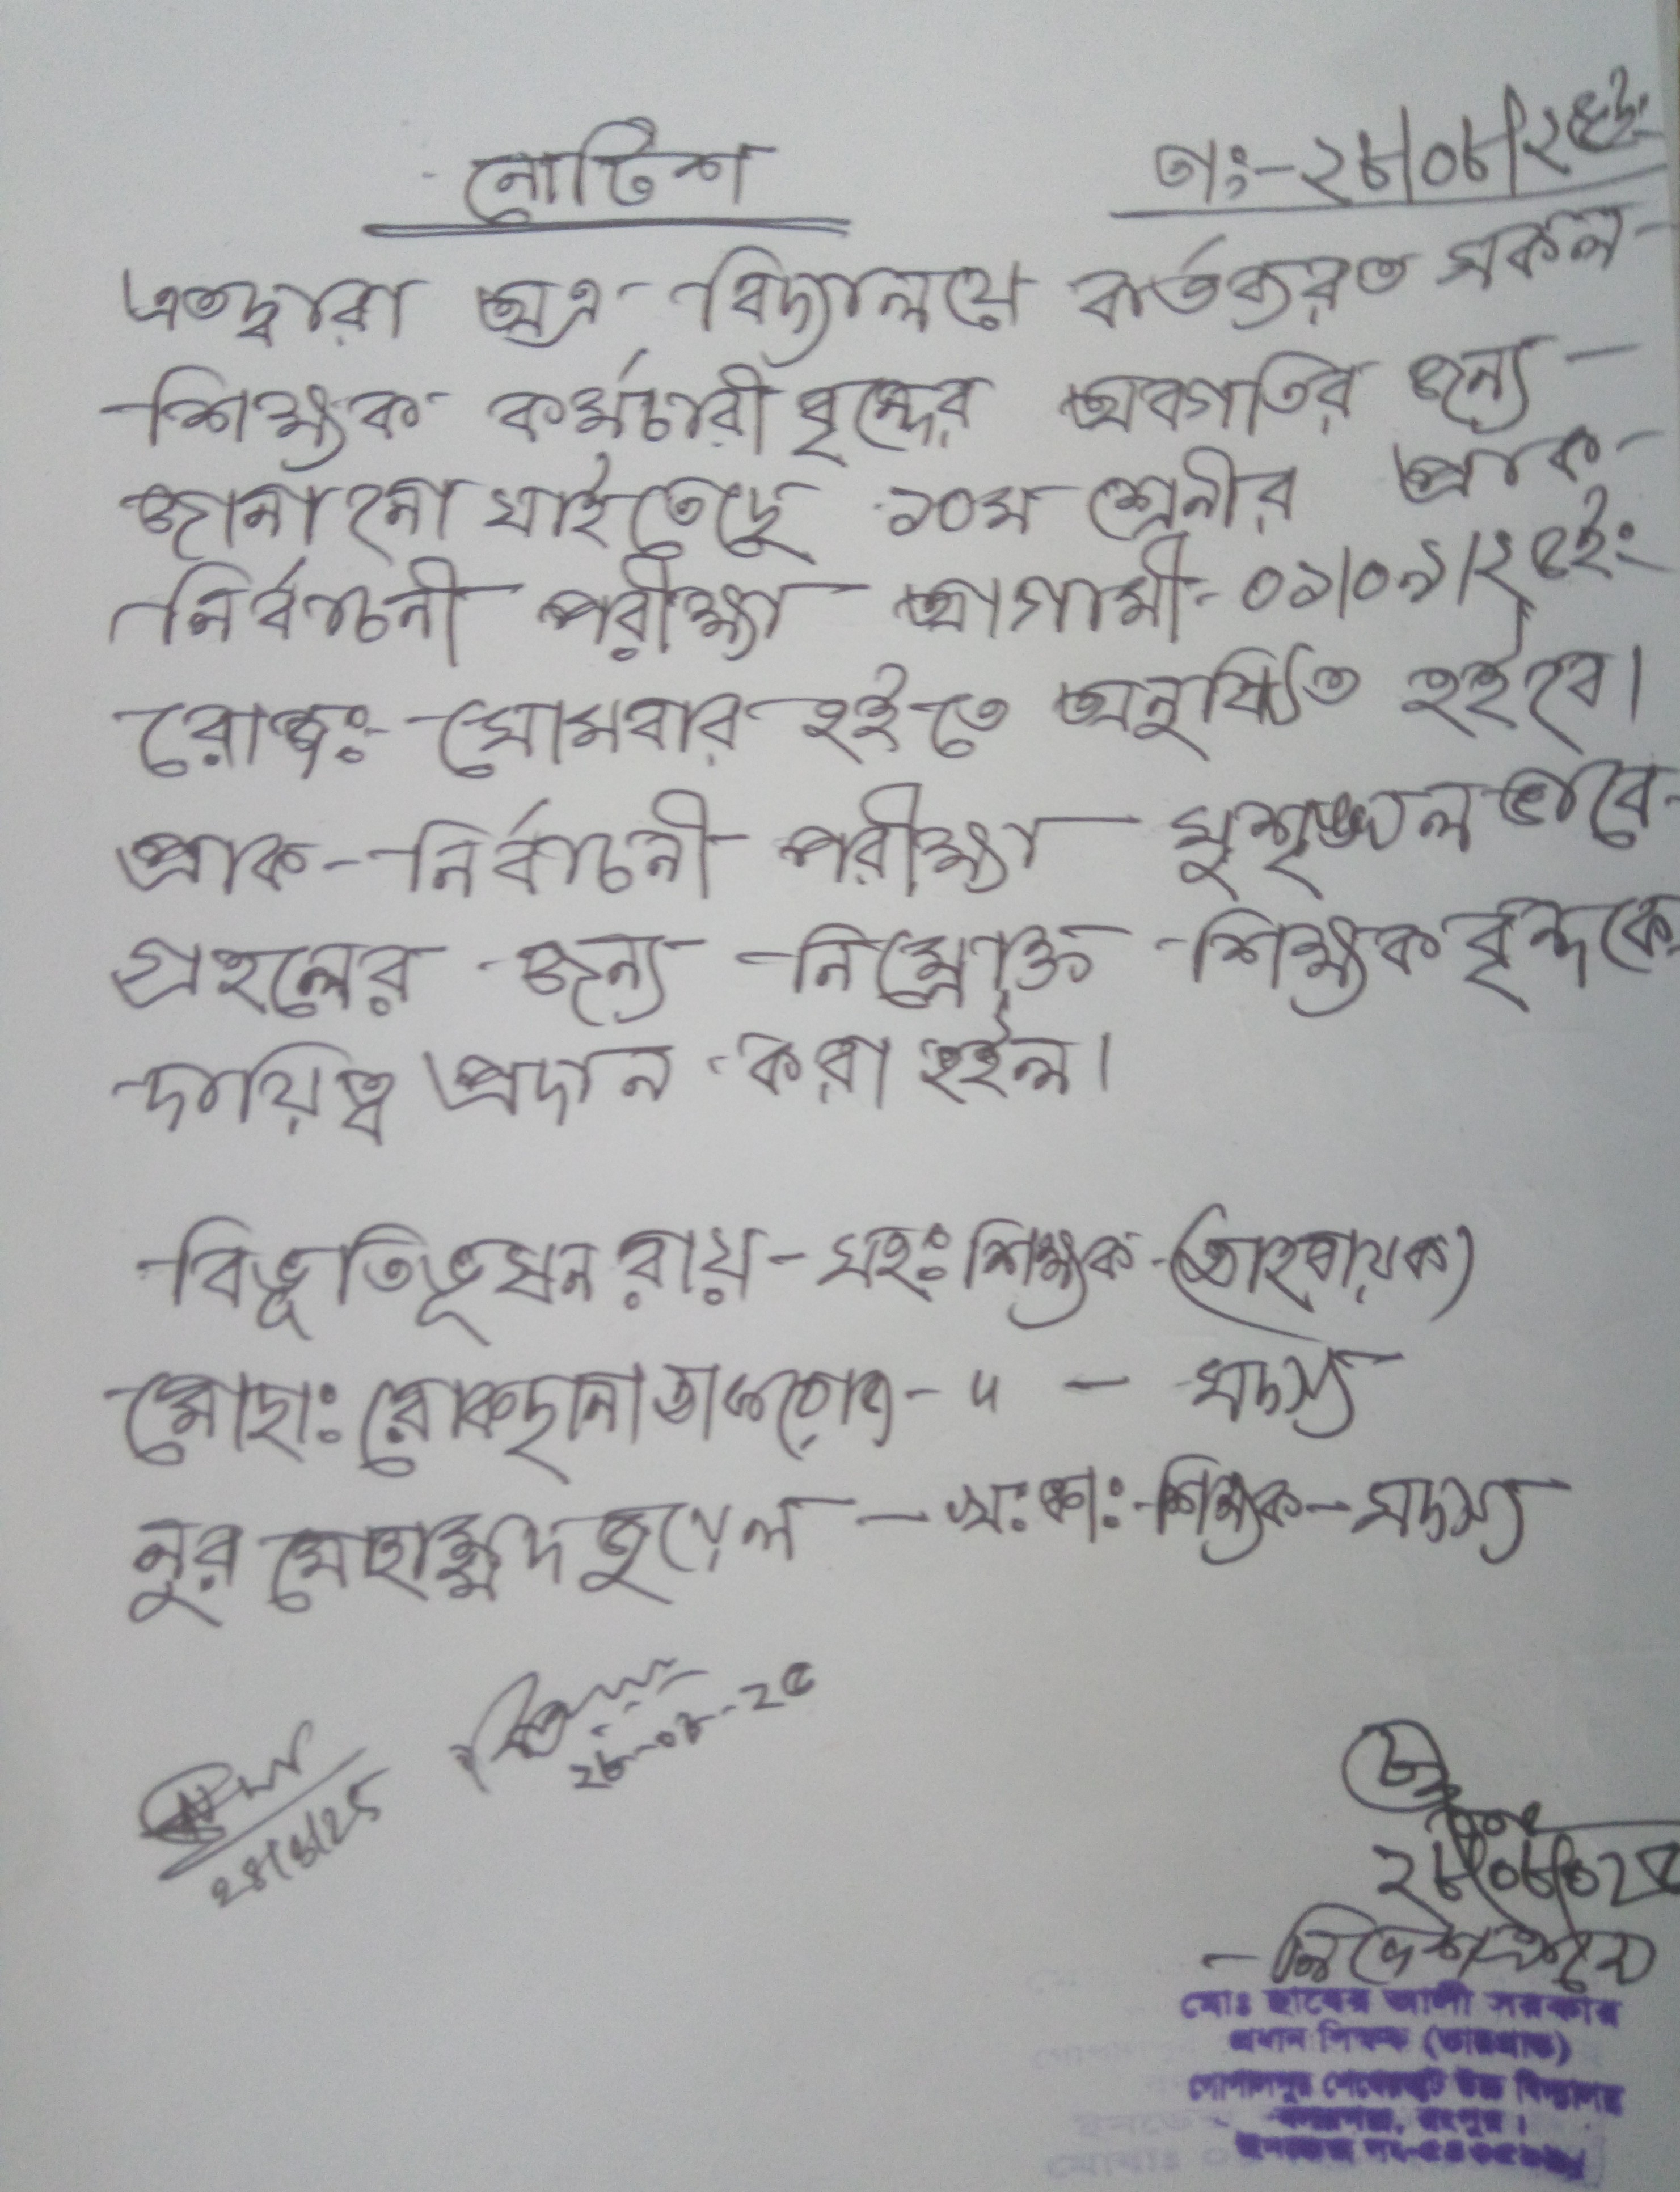 নোটিশ
তাং-২৮/০৮/২৫ইং
এতদ্বারা অত্র বিদ্যালয়ে কর্তব্যরত সকল
শিক্ষক কর্মচারী বৃন্দের অবগতির জন্য
জানানো যাইতেছে ১০ম শ্রেনীর প্রাক-
নির্বাচনী পরীক্ষা আগামী-০১/০৯/২৫ইং
রোজঃ সোমবার হইতে অনুষ্ঠিত হইবে।
প্রাক-নির্বাচনী পরীক্ষা সুশৃঙ্খল ভাবে
গ্রহনের জন্য নিম্নোক্ত শিক্ষক বৃন্দকে
দায়িত্ব প্রদান করা হইল।
বিভূতিভূষন রায় - সহঃ শিক্ষক (আহবায়ক)
মোছাঃ রোকছানা - " - সদস্য
নুর মোহাম্মদ জুয়েল - শিক্ষক - সদস্য
28/8/25
২৮-০৮-২৫
২৮/০৮/০২৫
নির্দেশক্রমে
মোঃ ছাবের আলী সরকার
প্রধান শিক্ষক (ভারপ্রাপ্ত)
গোপালপুর উচ্চ বিদ্যালয়
বদরগঞ্জ, রংপুর।